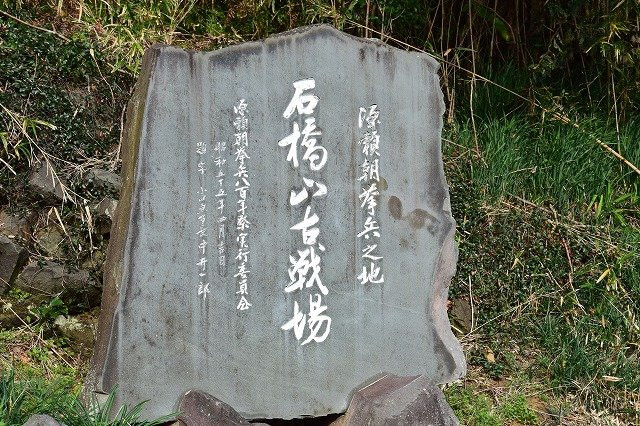 源頼朝挙兵之地
石橋山古戦場
源頼朝挙兵八百年祭実行委員会
昭和五十五年四月吉日
題字 小田原市長中井一郎